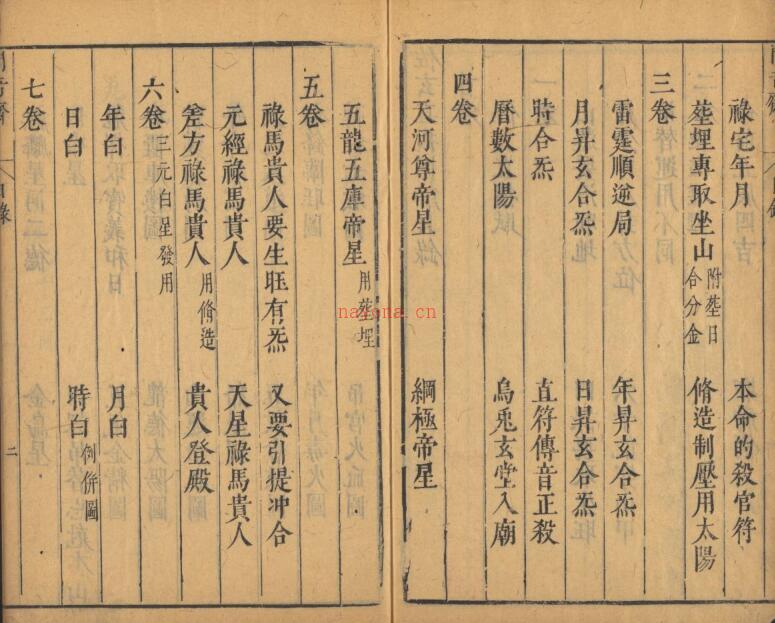 祿宅年月　本命的殺官符
塟埋專取坐山附塟日合分金　脩造制壓用太陽
三卷
雷霆順逆局　年昇玄合炁
月昇玄合炁　日昇玄合炁
時合炁　直符傳音正殺
曆數太陽　烏兎玄堂入廟
四卷
天河尊帝星　綱極帝星
五龍五庫帝星用塟埋
五卷
祿馬貴人要生旺有炁　又要引提冲合
元經祿馬貴人　天星祿馬貴人
差方祿馬貴人用脩造　貴人登殿
六卷三元白星發用
年白　月白
日白　時白例併圖
七卷
目錄
二
nayona.cn